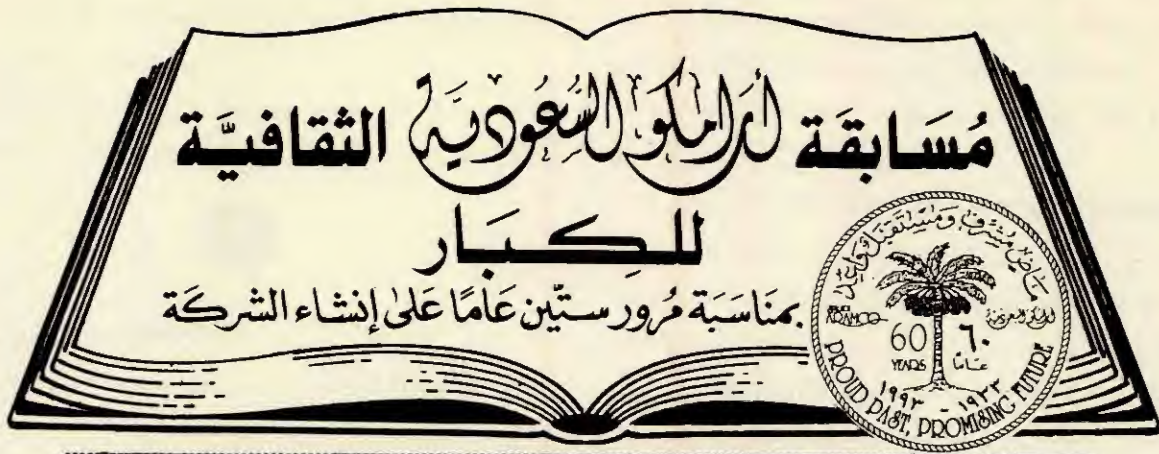 مُسَابقَة أرامكو السعودية الثقافيَّة
للكِبَار
بمنَاسَبَة مُرور ستّين عَامًا عَلى إنشاء الشركَة
مَاضٍ مُشرِّف وَمُستَقبَل وَاعِد
ARAMCO
أرامكو السعودية
60 ٦٠
YEARS عَامًا
١٩٣٣ - ١٩٩٣
PROUD PAST, PROMISING FUTURE